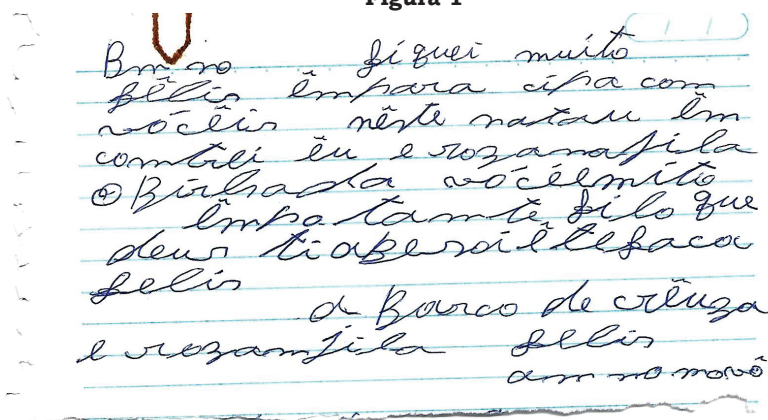 Figura 1
Bmno fiquei muito
fêlis êmpara cipa com
vócêis nêste natau êm
comtrei êu e rozanafila
Birlhada vócéêmito
êmpotamte filo que
deus tiabensóiêtefaca
felis
a Barco de crêuza
e rozamfila felis
am no novô